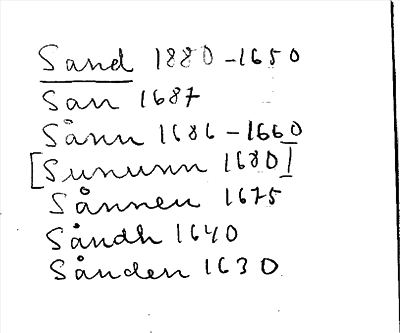 Sand 1880-1650
San 1687
Sånn 1686-1660
[Sununn 1680]
Sånnen 1675
Såndh 1640
Sånden 1630